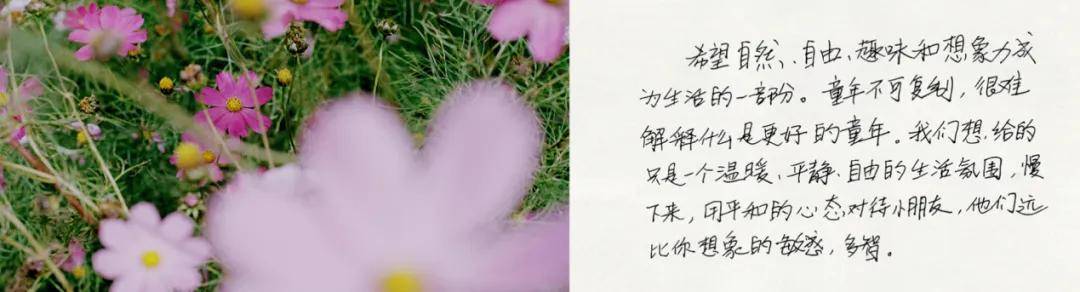 希望自然、自由、趣味和想象力成
为生活的一部份。童年不可复制，很难
解释什么是更好的童年。我们想给的
只是一个温暖、平静、自由的生活氛围，慢
下来，用平和的心态对待小朋友，他们远
比你想象的敏感，多智。